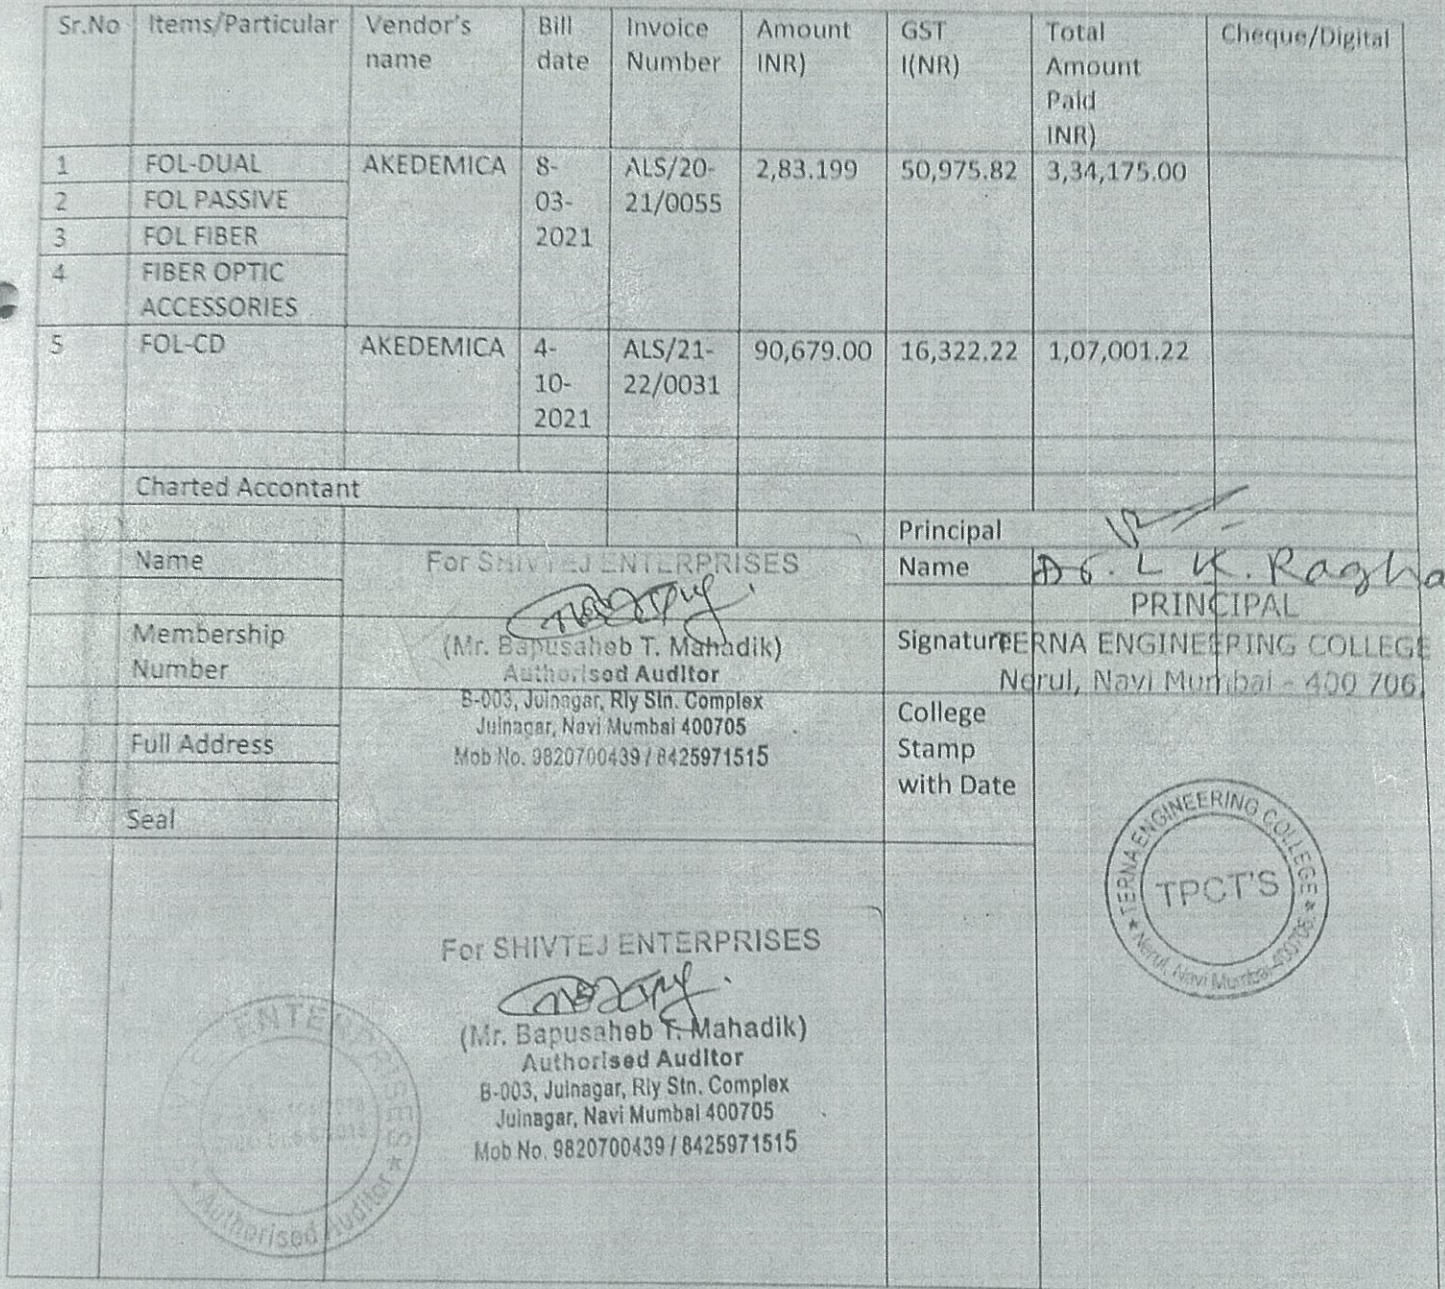 Sr.No Items/Particular Vendor's name Bill date Invoice Number Amount INR) GST I(NR) Total Amount Paid INR) Cheque/Digital
1 FOL-DUAL AKEDEMICA 8-03-2021 ALS/20-21/0055 2,83.199 50,975.82 3,34,175.00
2 FOL PASSIVE
3 FOL FIBER
4 FIBER OPTIC ACCESSORIES
5 FOL-CD AKEDEMICA 4-10-2021 ALS/21-22/0031 90,679.00 16,322.22 1,07,001.22
Charted Accontant
Principal
Name
For SHIVTEJ ENTERPRISES
Name Dr. L K. Ragha
PRINCIPAL
Membership Number
(Mr. Bapusaheb T. Mahadik)
Authorised Auditor
B-003, Juinagar, Rly Stn. Complex
Juinagar, Navi Mumbai 400705
Mob No. 9820700439 / 8425971515
Signature TERNA ENGINEERING COLLEGE
Nerul, Navi Mumbai - 400 706
Full Address
College
Stamp
with Date
Seal
TERNA ENGINEERING COLLEGE
TPCT'S
Nerul, Navi Mumbai-400706
For SHIVTEJ ENTERPRISES
(Mr. Bapusaheb T. Mahadik)
Authorised Auditor
B-003, Juinagar, Rly Stn. Complex
Juinagar, Navi Mumbai 400705
Mob No. 9820700439 / 8425971515
ENTERPRISES
Authorised Auditor